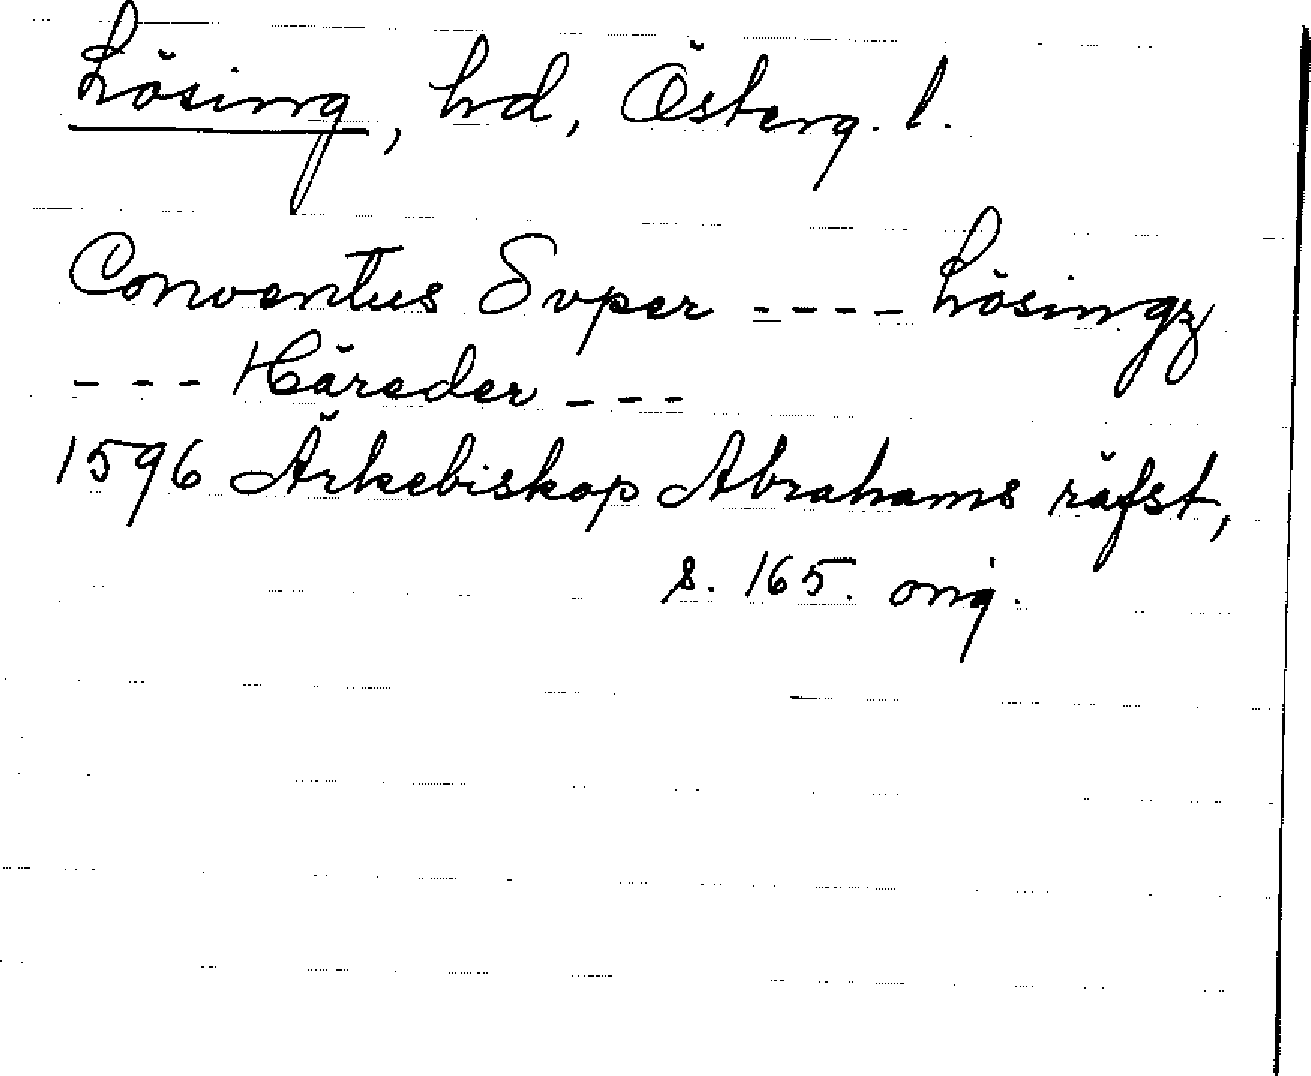 Lösing, hd, Österg. l.
Conventus Svper ---- Lösingz
--- Häreder ---
1596 Ärkebiskop Abrahams räfst,
s. 165. orig.